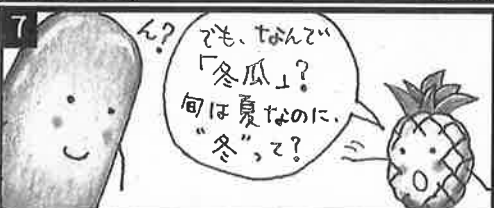 7
ん?
でも、なんで
「冬瓜」?
旬は夏なのに、
"冬"って?